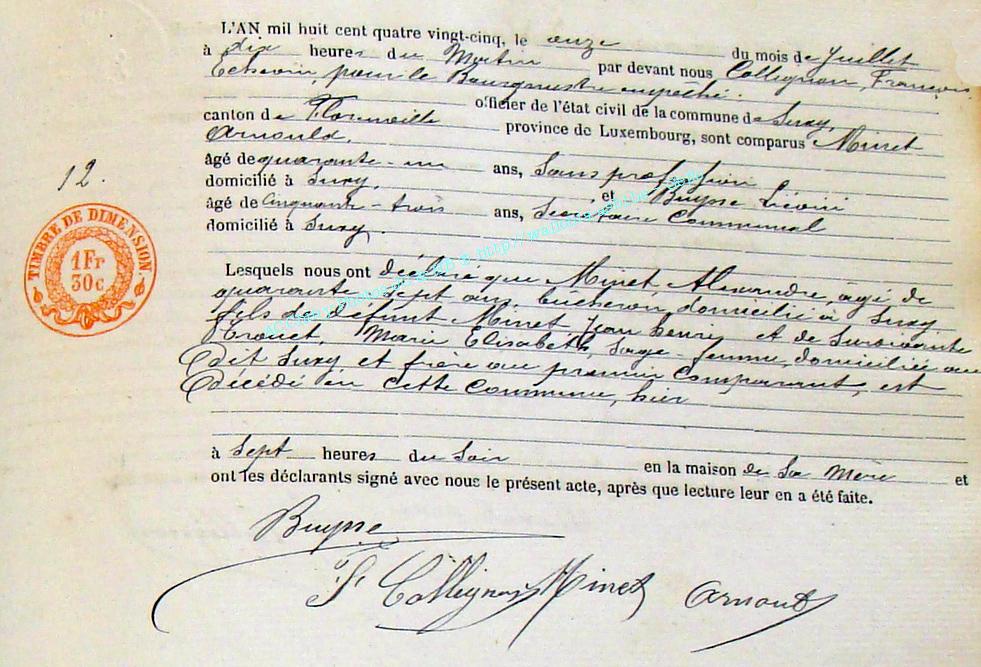 L'AN mil huit cent quatre vingt-cinq, le onze du mois de Juillet
à dix heures du Matin par devant nous Collignon, François
Echevin, pour le Bourgmestre empêché.
officier de l'état civil de la commune de Suxy,
canton de Florenville province de Luxembourg, sont comparus Minet
Arnould,
12.
âgé de quarante-un ans, Sans profession
domicilié à Suxy, et Buysse Liévin
âgé de Cinquante-trois ans, Secrétaire Communal
domicilié à Suxy.
TIMBRE DE DIMENSION
1 Fr
30 c
Lesquels nous ont déclaré que Minet, Alexandre, agé de
quarante sept ans, bucheron, domicilié à Suxy
fils de défunt Minet Jean Henri et de Survivante
Marie Elisabeth, Sage-femme, domiciliée au
dit Suxy et frère au premier Comparant, est
décédé en cette Commune, hier
à Sept heures du Soir en la maison de Sa Mère et
ont les déclarants signé avec nous le présent acte, après que lecture leur en a été faite.
Buysse
F Collignon Minet Arnould